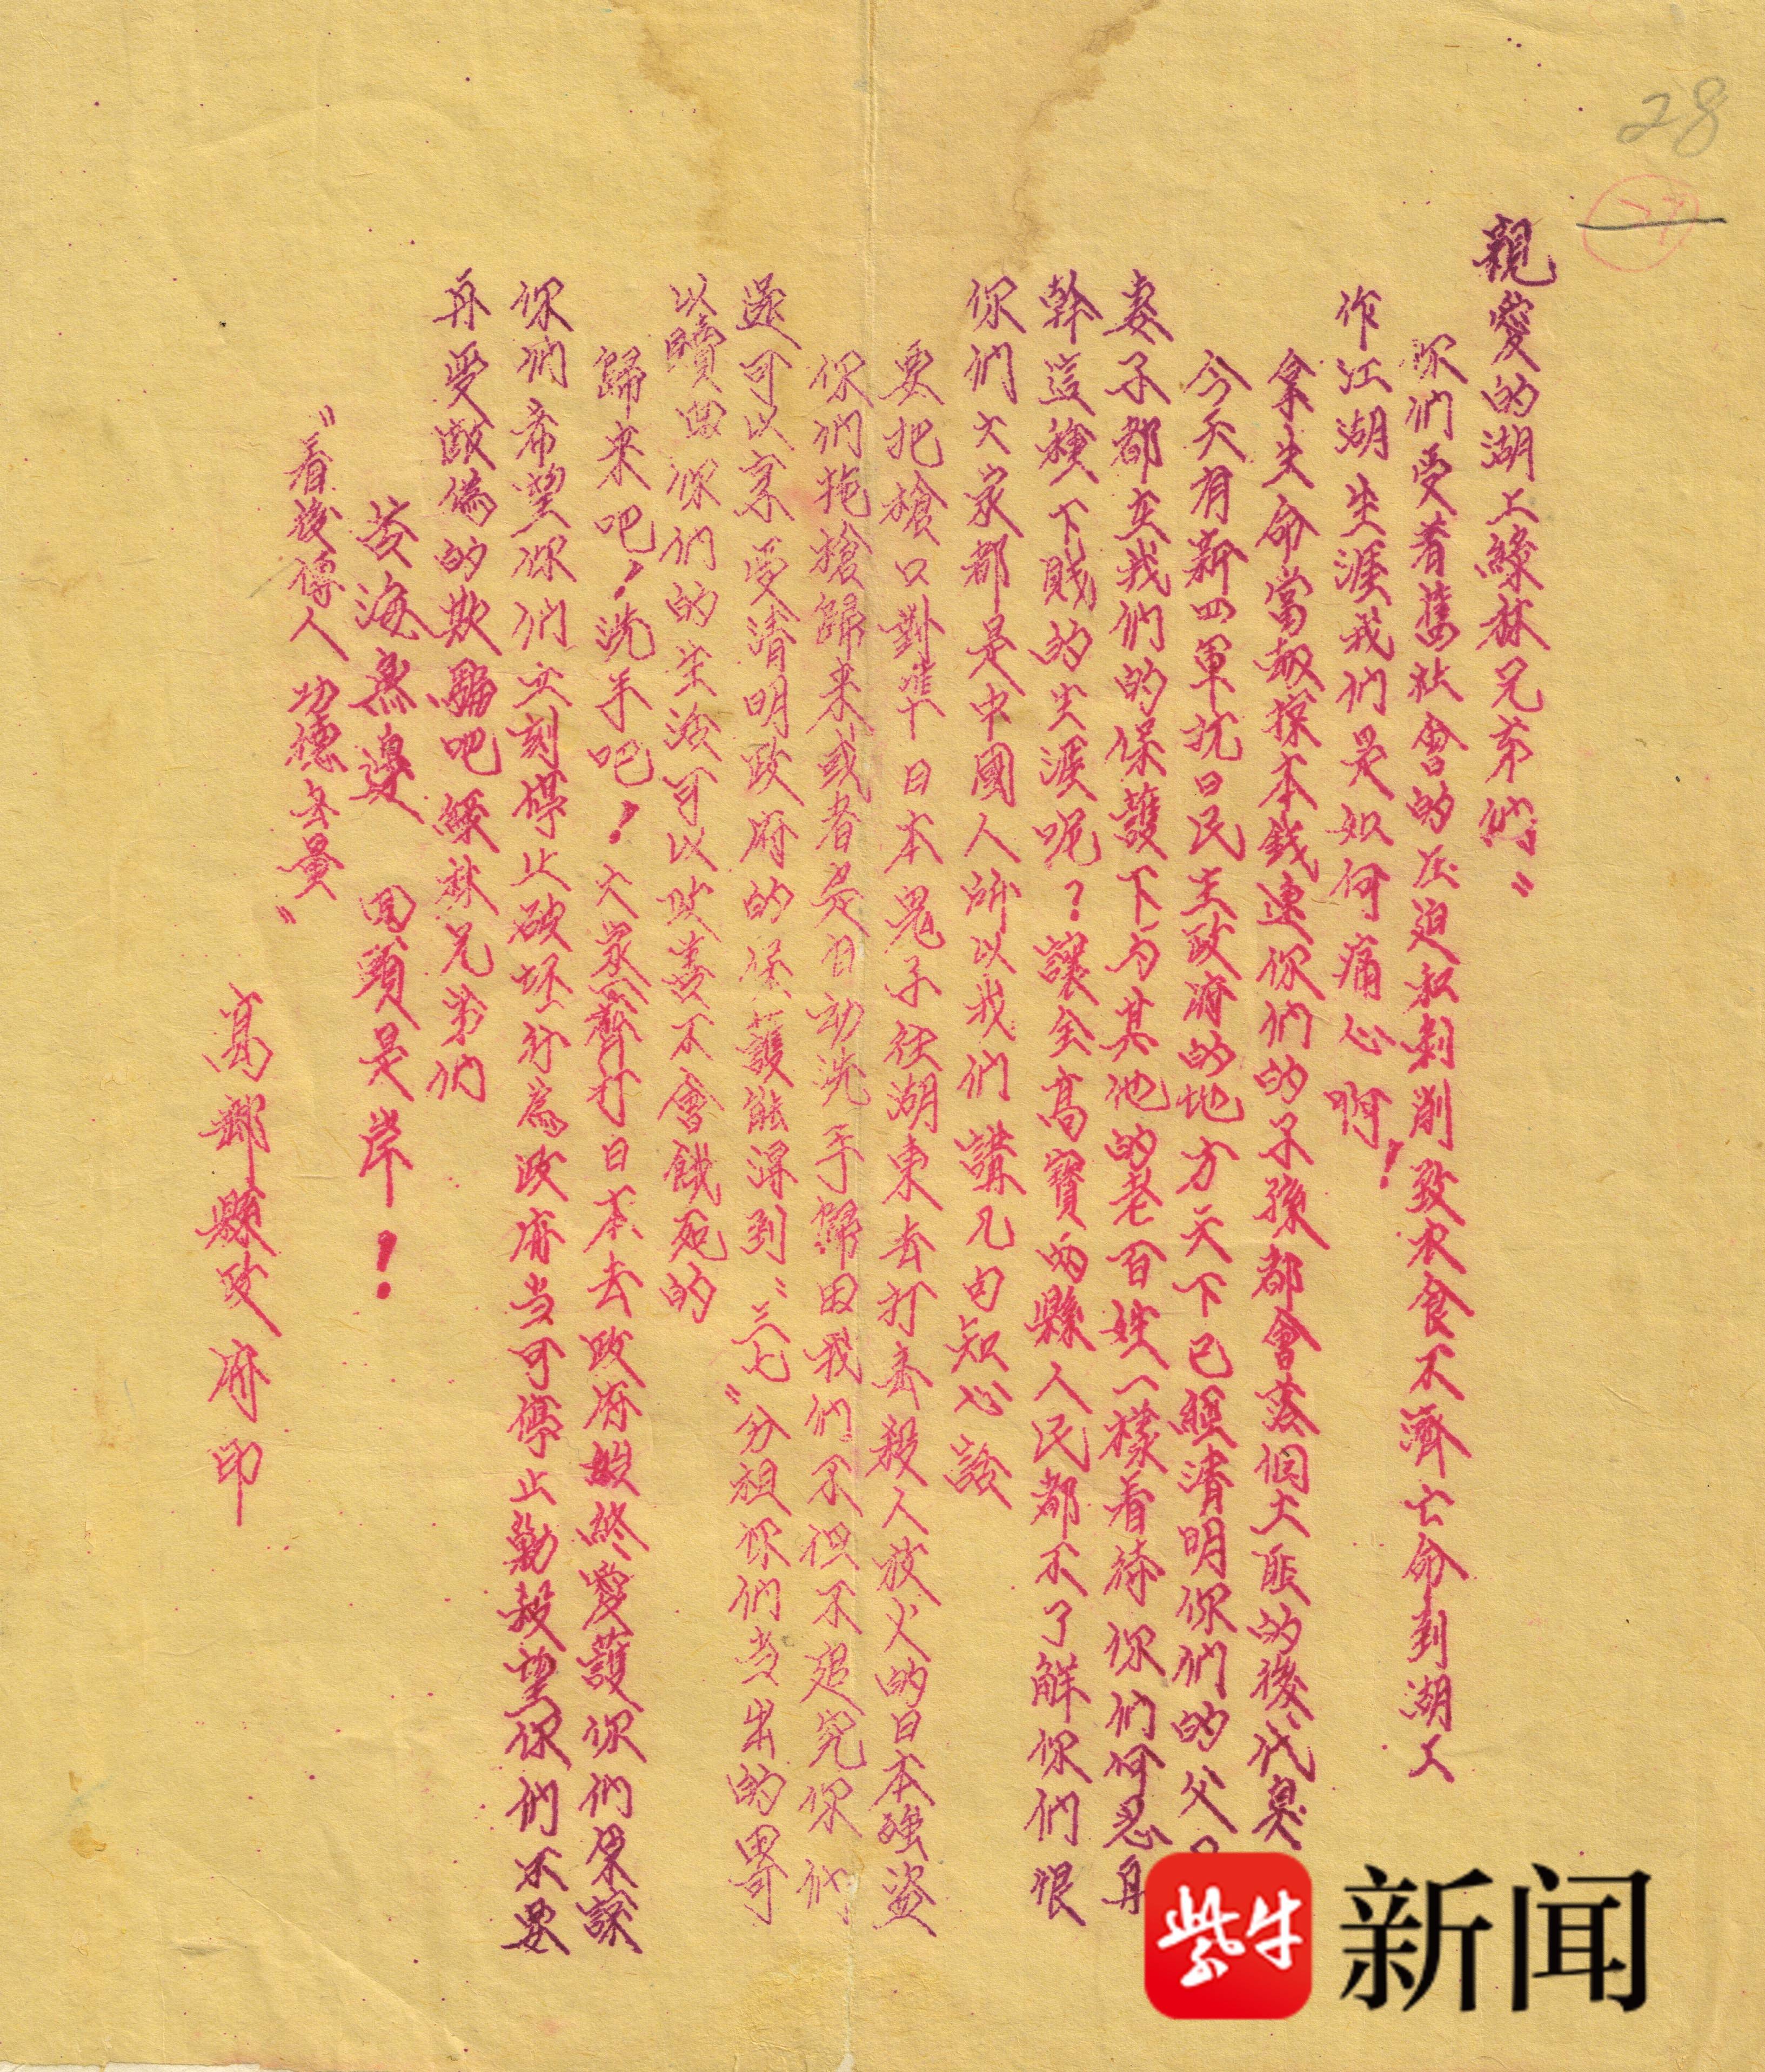 28
親愛的湖上綠林兄弟們〞
你們受着舊社會的压迫和剝削致衣食不濟亡命到湖上
作江湖生涯我們是如何痛心啊！
拿生命當報採本錢連你們的子孫都會落個土匪的後代臭
今天有新四軍抗日民主政府的地方天下已經清明你們的父
妻子都在我们的保護下与其他的老百姓一樣看待你們何忍再
幹這種下賎的生涯呢？讓全高寶兩縣人民都不了解你們恨
你們大家都是中國人所以我们講几句知心話
要把槍口對準日本鬼子往湖東去打击殺人放火的日本强盗
你們拖槍歸来或者是自动洗手歸田我们不但不追究你們
還可以享受清明政府的保護能得到〝三七〞分租你們当出的田
以贖回你们的生活可以改善不會餓死的
歸来吧！洗手吧！大家齊打日本去政府始終愛護你們原諒
你们希望你们立刻停止破坏行為政府当可停止勦殺望你們不要
再受敵偽的欺騙吧綠林兄弟们
苦海無邊 回頭是岸！
〝看後傳人 功德无量〞
高郵縣政府印
紫牛
新闻